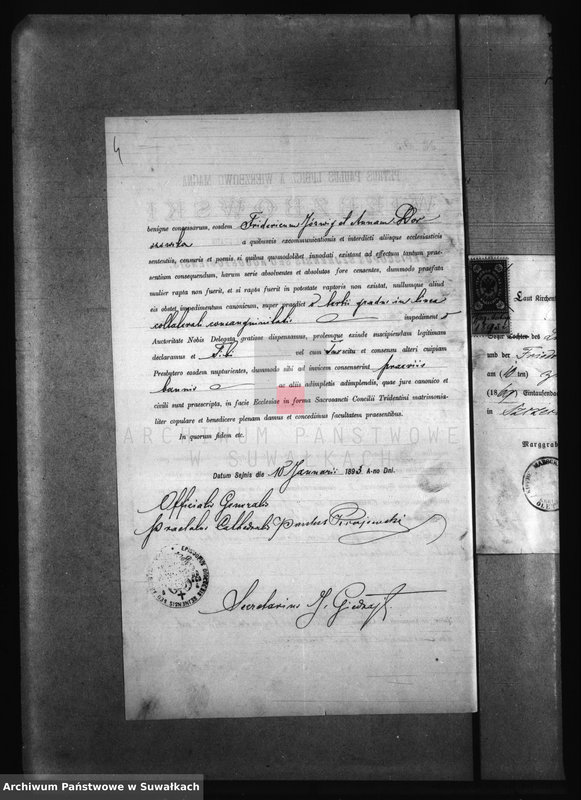 4
benigne congruarum, eosdem Fridericum Jórwig et Annam Dor
a quibusvis excommunicationis et interdicti aliisque ecclesiasticis
sententiis, censuris et poenis si quibus quomodolibet innodati, existant ad effectum tantum prae-
sentium consequendum, harum serie absolventes et absolutos fore censentes, dummodo praefata
mulier rapta non fuerit, et si rapta fuerit in potestate raptoris non existat, nullumque aliud
eis obstet impedimentum canonicum, super praefici gradu in linea
collaterali consanguinitatis impedimento
Auctoritate Nobis Delegata gratiose dispensamus, prolemque exinde suscipiendam legitimam
declaramus et Tibi vel cum Tuo scitu et consensu alteri cuipiam
Presbytero eosdem nupturientes, dummodo sibi ad invicem consenserint praeviis
bannis ac aliis adimpletis adimplendis, quae jure canonico et
civili sunt praescripta, in facie Ecclesiae in forma Sacrosancti Concilii Tridentini matrimonia-
liter copulare et benedicere plenam damus et concedimus facultatem praesentibus.
In quorum fidem etc.
Datum Sejnis die 18 Januarii 1893 A-no Dni.
Officialis Generalis
Praelatus Cathedralis Paulus
Secretarius J.
Laut Kirchen
und der Friede
am (10 ten)
(18 Eintausend
in
Marggrab
ARCHIWUM PAŃSTWOWE
W SUWAŁKACH
Archiwum Państwowe w Suwałkach